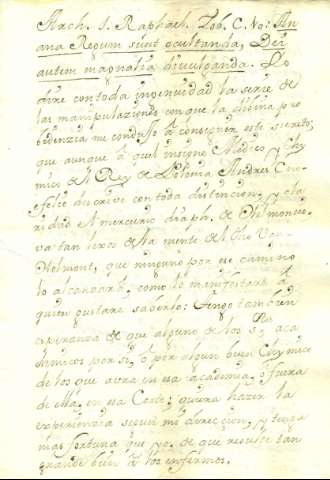 Arch. S. Raphael. Tob. C. No: An
ana Regum sunt ocultanda, Dei
autem magnalia divulganda. Yo
dire con toda ingenuidad la serie de
las manipulaziones con que la divina pro
bidenzia me conduxo â conseguir este secreto;
que aunque â quel insigne Medico, y Chy
mico del Rey de Polonia Andres Cne
felio describe con toda distencion, y cla
ridad el mercurio diapa. de Helmoncio,
va tan lexos de la mente del Van
Helmont, que ninguno por ese camino
lo alcanzará, como lo manifestará â
quien gustare saberlo: tengo tambien
esperanza de que alguno de los SS. aca
demicos por si, ô por algun buen Chymico
de los que avra en esa academia, ô fuera
de ella, en esa Corte; quiera hazer la
experiencia segun mi direccion, y tenga
mas fortuna que yo. de que resulte tan
grande bien â los enfermos.